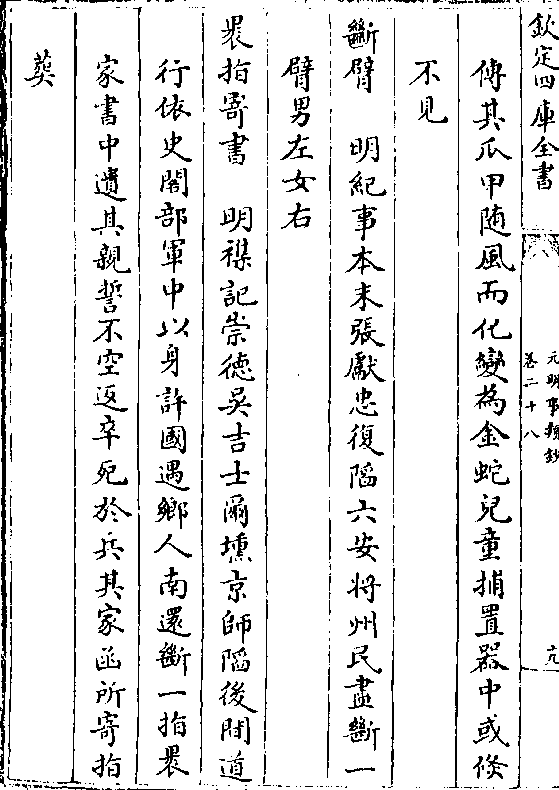 欽定四庫全書
元明事類鈔
卷二十八
十九
傅其爪甲随風而化變為金蛇兒童捕置器中或倐
不見
斷臂　明紀事本末張獻忠復陷六安将州民盡斷一
臂男左女右
褁指寄書　明襍記崇徳吳吉士爾壎京師陷後間道
行依史閣部軍中以身許國遇鄉人南還斷一指褁
家書中遺其親誓不空返卒死於兵其家函所寄指
葬